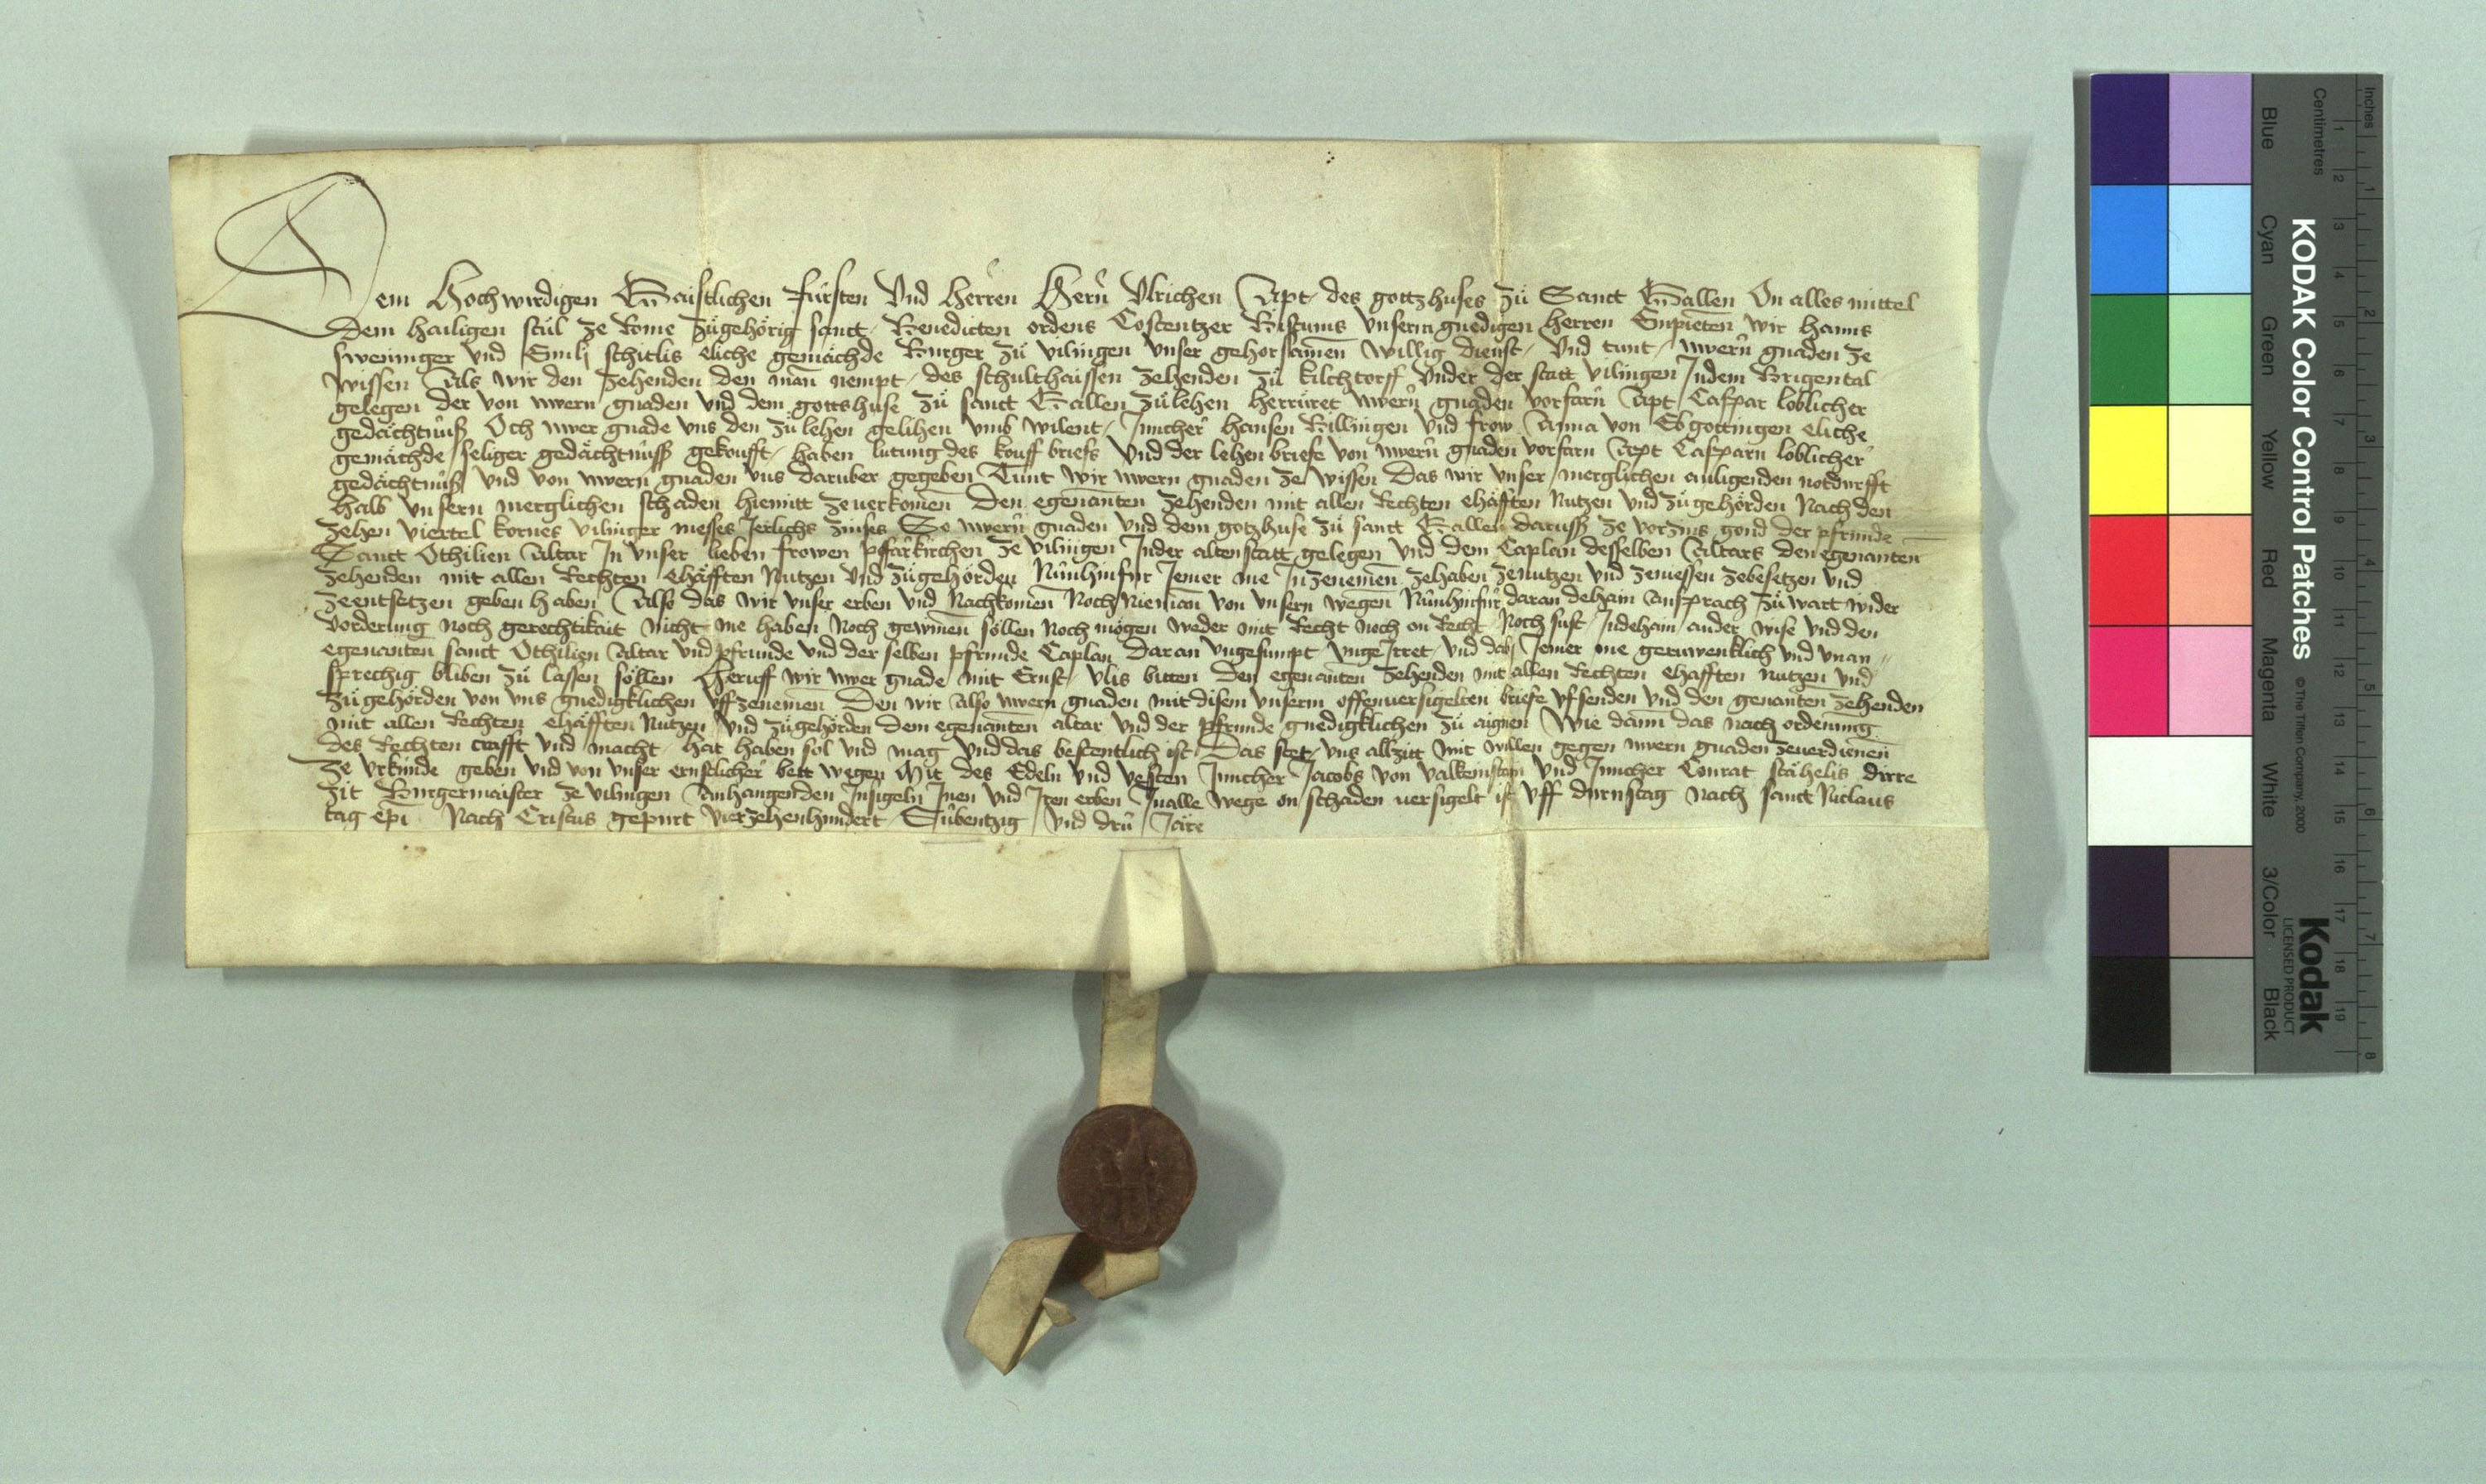 Dem Hochwirdigen Gaistlichen fürsten Vnd herren Hern̄ Vlrichen Apt des gotzhuses zů Sanct Gallen On alles mittel
Dem hailigen stůl ze Rome zůgehörig sanct Benedicten ordens Costentzer Bistums vnserm gnedigen herren Enpieten wir hanns
sweninger vnd Enilj schitlis eliche gemächde Burger zů vilingen vnser gehorsamen willig dienst Vnd tunt uwern̄ gnaden ze
wissen Als wir den zehenden den man nempt des schulthaissen zehenden zů kilchtorff Vnder der statt vilingen Jn dem Brigental
gelegen der von uwern gnaden vnd dem gottshuse zů sanct Gallen zů lehen herrüret uwern̄ gnaden vorfarn̄ Apt Caspar loblicher
gedächtnüß Och uwer gnade vns den zů lehen gelihen vmb wilent Juncher hansen Billingen Vnd frow Anna von Ebgottingen eliche
gemächde seliger gedächtnüß gekoufft haben lutung des kouff briefs Vnd der lehen briefe von uwern̄ gnaden vorfarn Apt Casparn loblicher
gedächtnüß Vnd von uwern gnaden vns daruber gegeben Tunt wir uwern gnaden ze wissen Das wir vnser merglichen anligenden notdurfft
halb vnsern merglichen schaden hiemitt ze uerkomen Den egenanten zehenden mit allen Rechten ehäfften Nutzen vnd zůgehörden Nach den
zehen viertel kornes vilinger messes Jerlichs zinses So uwern̄ gnaden vnd dem gotzhuse zů sanct Gallen daruß ze vorzins gond der pfrunde
Sanct Othilien Altar Jn vnser lieben frowen pfarkirchen ze vilingen Jn der altenstatt gelegen vnd dem Caplan desselben Altars den egenanten
zehenden mit allen Rechten ehäfften Nutzen vnd zůgehörden Nünhinfür Jemer me Jnzenemen zehaben zenutzen vnd zeniessen zebesetzen vnd
zeentsetzen geben haben Also das wir vnser erben vnd Nachkomen Noch Nieman von vnsern wegen Nünhinfür daran deham Ansprach zů wart wider
vorderung noch gerechtikait nicht me haben Noch gewinen söllen Noch mögen weder mit Recht noch on Recht Noch sust Jn deham ander wise vnd den
egenanten sanct Othilien Altar vnd pfrunde vnd der selben pfrunde Caplan Daran vngesumpt vngeJrret vnd dabj Jemer me geruwenklich vnd vnan
sprechig bliben zů lassen söllen Heruff wir uwer gnade mit Ernst vlis bitten Den egenanten zehenden mit allen Rechten ehafften nutzen vnd
zůgehörden von vns gnedigklichen vffzenemen Den wir Also uwern gnaden mit disem vnserm offenuersigelten briefe vfsenden vnd den genanten zehenden
mit allen Rechten ehäfften Nutzen vnd zůgehörden dem egenanten altar vnd der pfrunde gnedigklichen zů aignen Wie dann das nach ordenung
des Rechten crafft vnd macht hat haben sol vnd mag vnd das bestentlich ist Das stet vns allzitt mit willen gegen uwern gnaden zeuerdienen
Ze vrkünde geben vnd von vnser ernstlicher bett wegen Mit des Edeln vnd vesten Juncher Jacobs von valkenstain vnd Juncher Conrat stähelis dirre
zit Burgermaister ze vilingen Anhangenden Jnsigeln Jnen vnd Jren erben Jn alle wege on schaden uersigelt ist Vff durnstag Nach sanct Niclaus
tag ep̄i Nach Cristus gepurt vierzehenhundert Sübentzig vnd drü Jare
Inches
Centimetres
1 2 3 4 5 6 7 8
1 2 3 4 5 6 7 8 9 10 11 12 13 14 15 16 17 18 19
KODAK Color Control Patches
© The Tiffen Company, 2000
Kodak
LICENSED PRODUCT
Blue Cyan Green Yellow Red Magenta White 3/Color Black